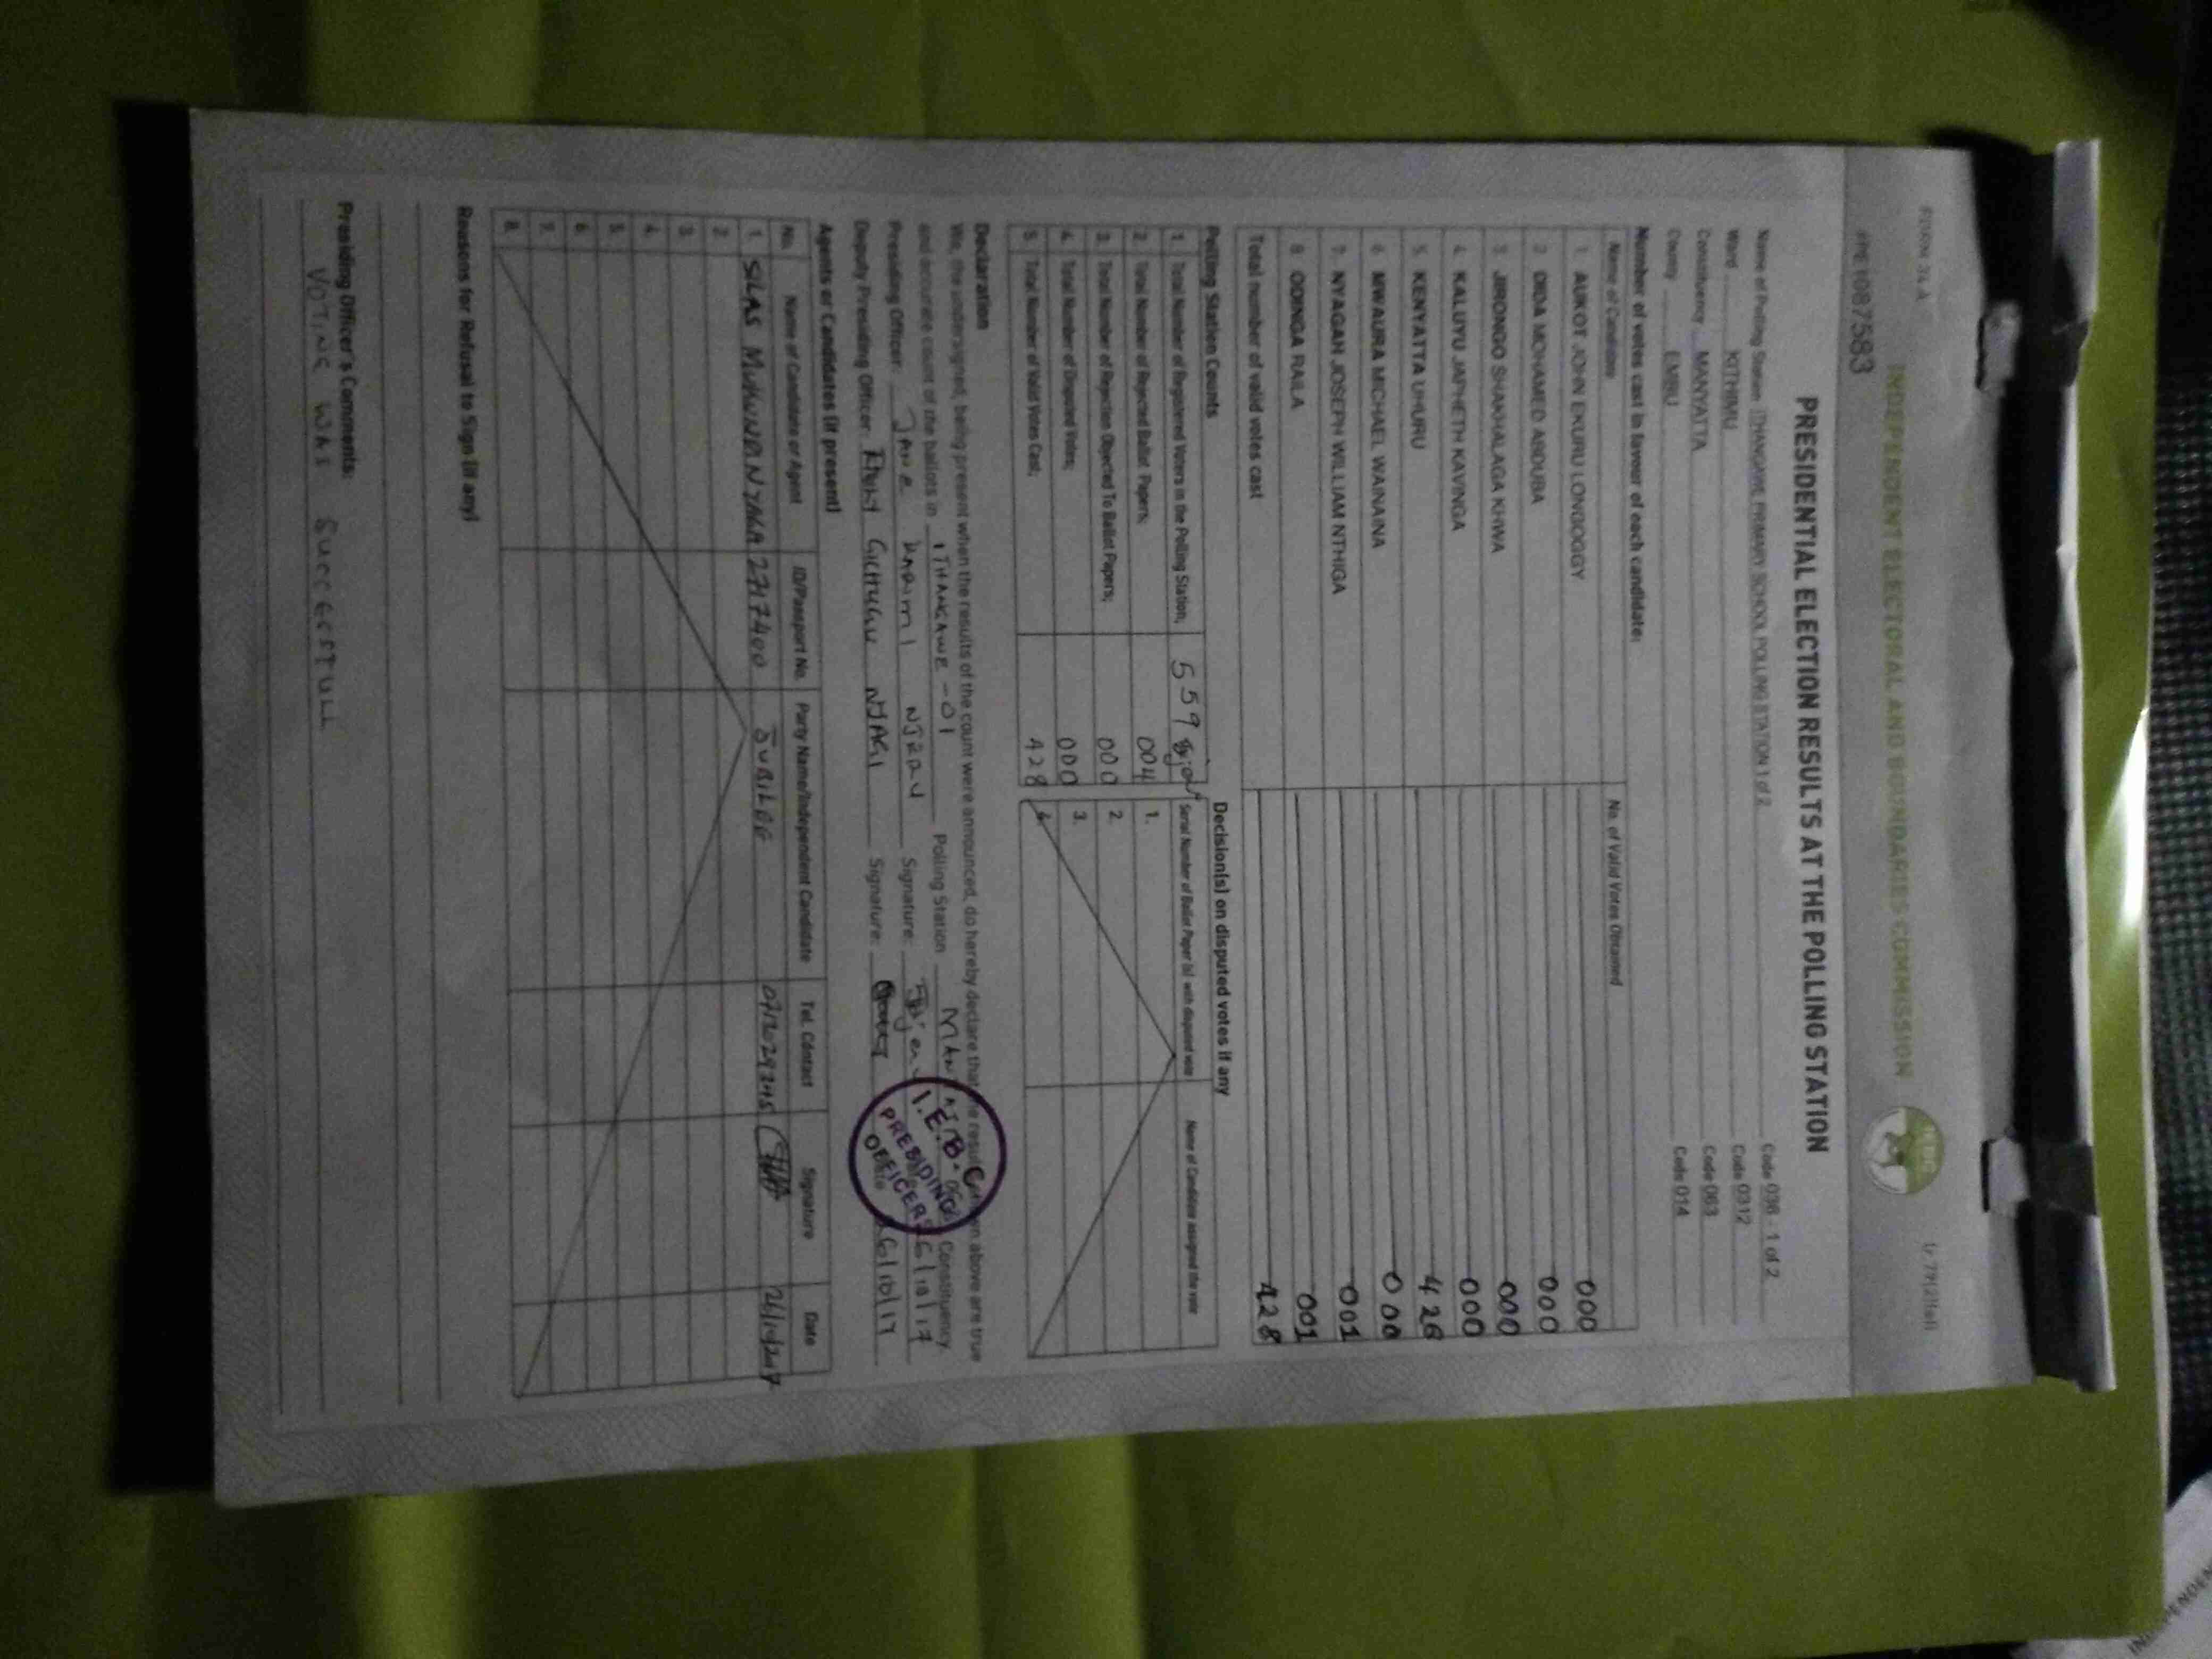 FORM 34 A
INDEPENDENT ELECTORAL AND BOUNDARIES COMMISSION
087583
PRESIDENTIAL ELECTION RESULTS AT THE POLLING STATION
Name of Polling Station ITHANGAWE PRIMARY SCHOOL POLLING STATION 1 of 2 Code 036 - 1 of 2
Ward KITHIMU Code 0312
Constituency MANYATTA Code 063
County EMBU Code 014
Number of votes cast in favour of each candidate:
Name of Candidate No. of Valid Votes Obtained
1. AUKOT JOHN EKURU LONGOGGY 000
2. DIDA MOHAMED ABDUBA 000
3. JIRONGO SHAKHALAGA KHWA 000
4. KALUYU JAPHETH KAVINGA 000
5. KENYATTA UHURU 426
6. MWAURA MICHAEL WAINAINA 000
7. NYAGAH JOSEPH WILLIAM NTHIGA 001
8. ODINGA RAILA 001
Total number of valid votes cast 428
Polling Station Counts
1. Total Number of Registered Voters in the Polling Station; 559
2. Total Number of Rejected Ballot Papers; 004
3. Total Number of Rejection Objected To Ballot Papers; 000
4. Total Number of Disputed Votes; 000
5. Total Number of Valid Votes Cast; 428
Decision(s) on disputed votes if any
Serial Number of Ballot Paper (s) with disputed vote Name of Candidate assigned the vote
1.
2.
3.
4.
Declaration
We, the undersigned, being present when the results of the count were announced, do hereby declare that the results shown above are true
and accurate count of the ballots in ITHANGAWE - 01 Polling Station Constituency
Presiding Officer: JANE NJERU Signature:
Deputy Presiding Officer: GICHUGU NJAGI Signature:
I.E.B.C
PRESIDING
OFFICER
Agents or Candidates (if present)
No. Name of Candidate or Agent ID/Passport No. Party Name/Independent Candidate Tel. Contact Signature Date
1. SILAS 2717400 JUBILEE
2.
3.
4.
5.
6.
7.
8.
Reasons for Refusal to Sign (if any)
Presiding Officer's Comments:
VOTING WAS SUCCESSFULL